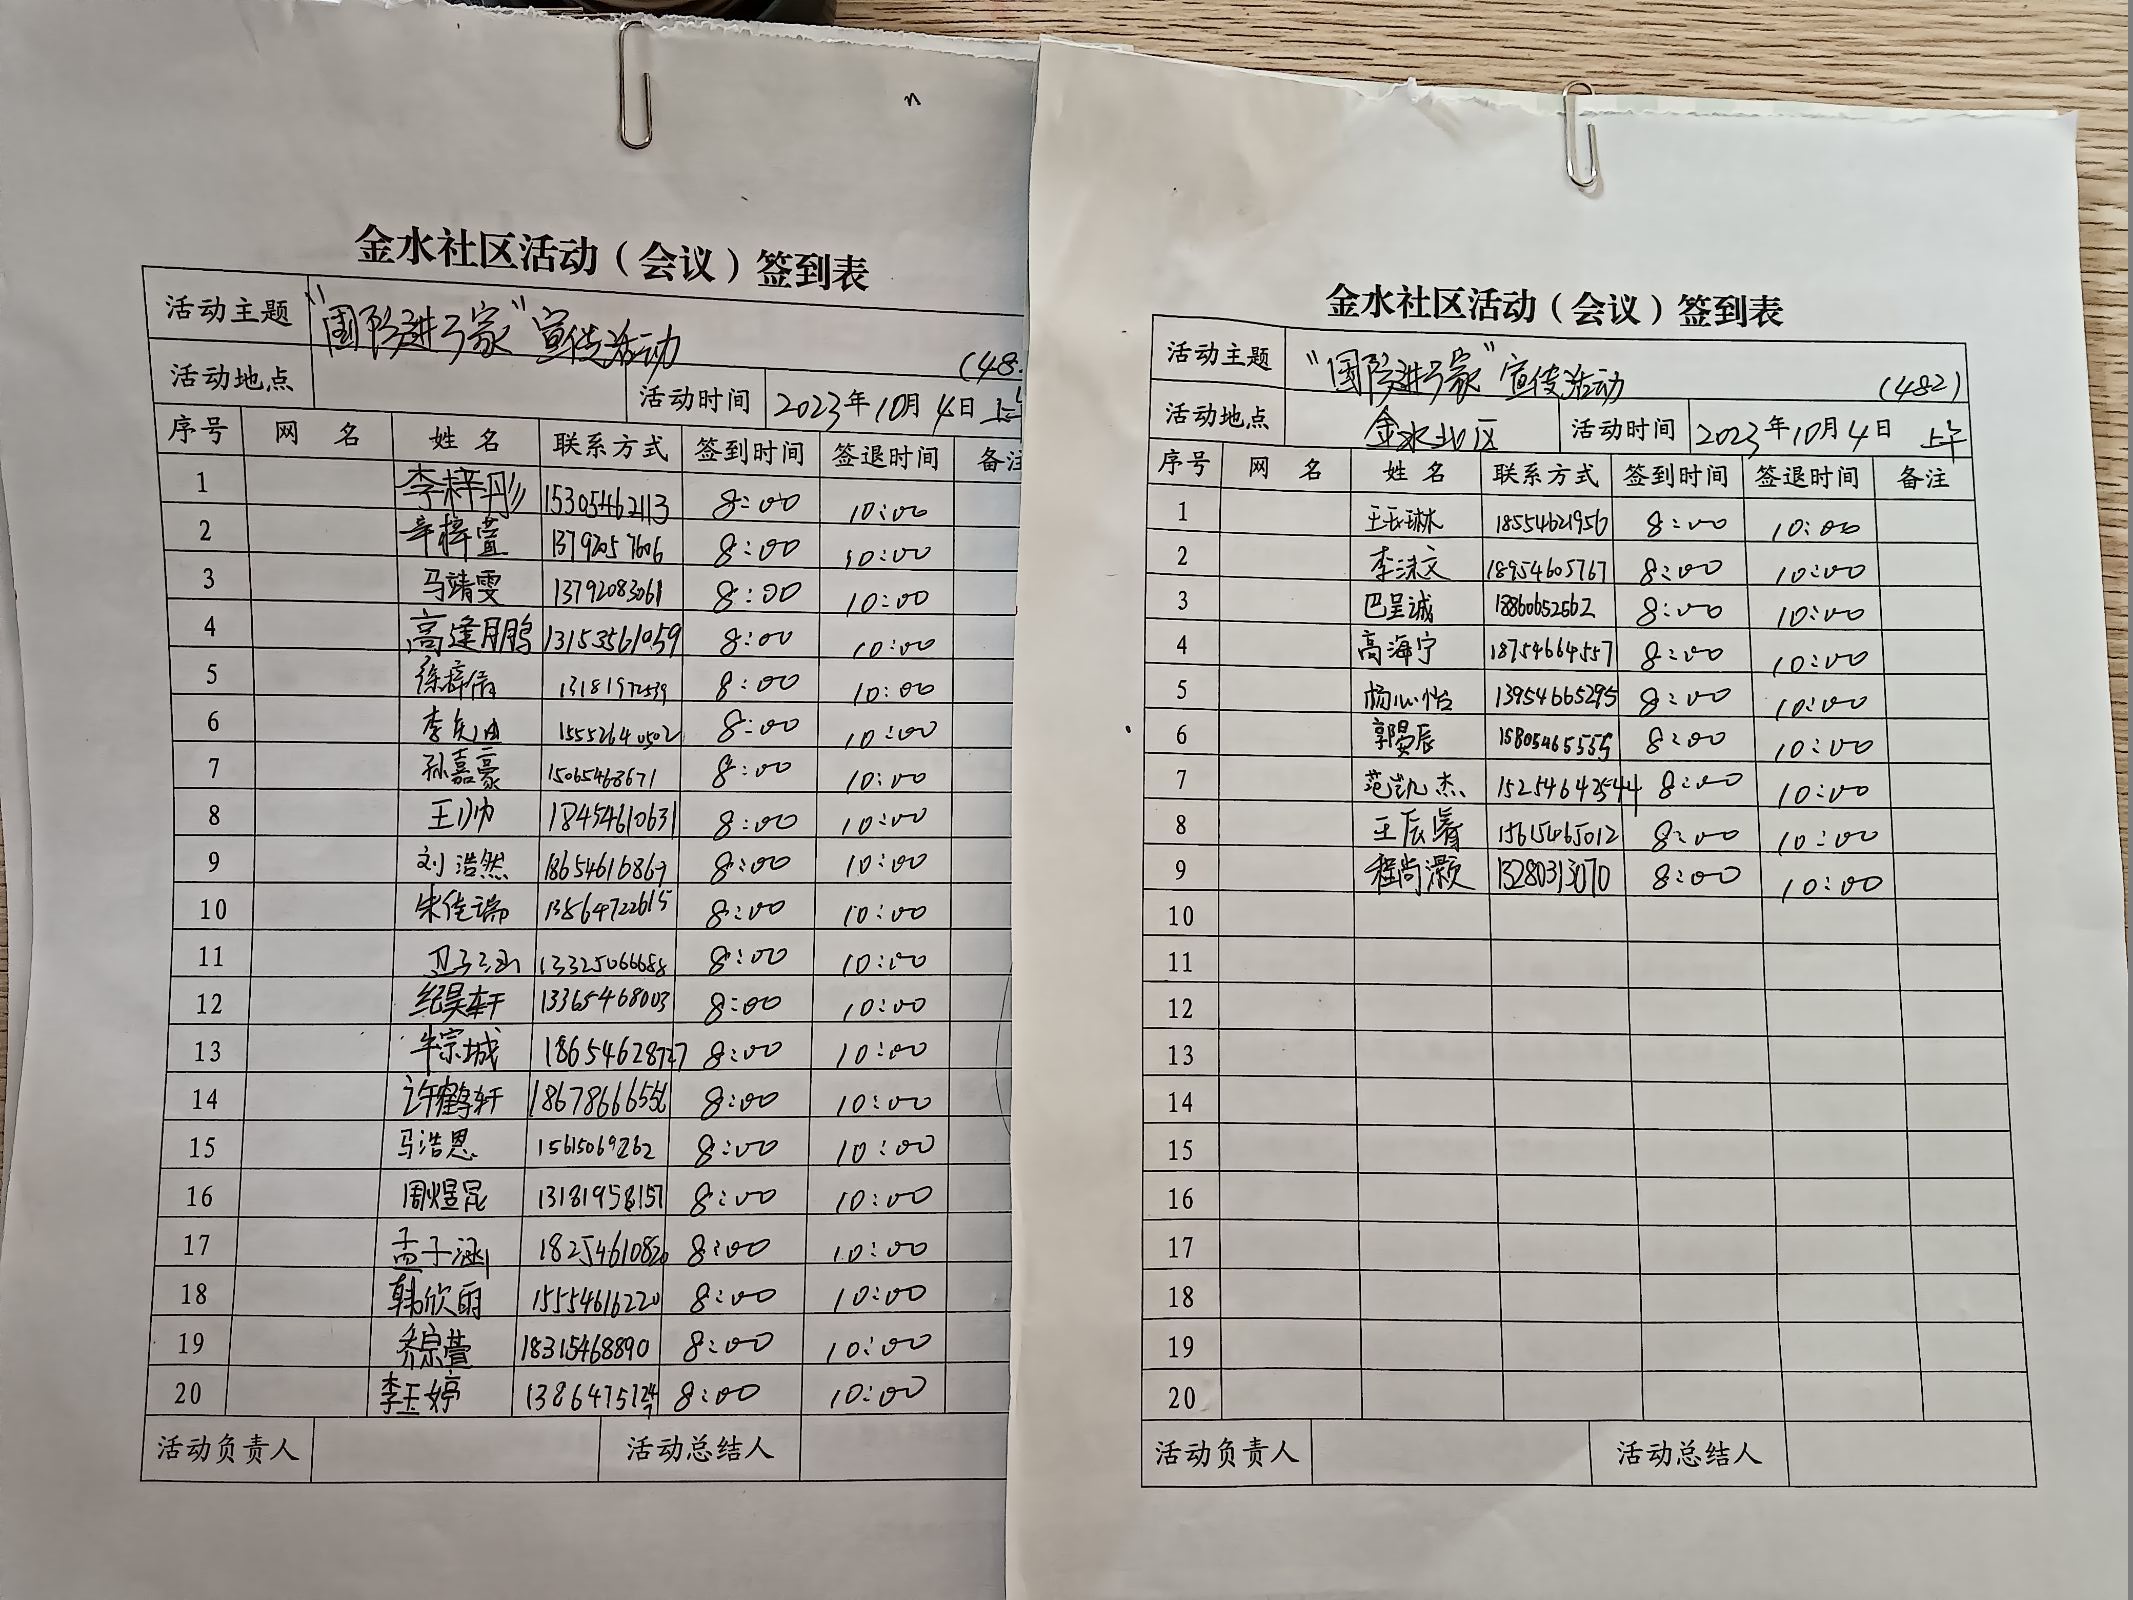 金水社区活动（会议）签到表
活动主题 “国防进万家”宣传活动 (48
活动地点 活动时间 2023年10月4日 上午
序号 网 名 姓 名 联系方式 签到时间 签退时间 备注
1 李梓彤 15305462113 8:00 10:00
2 辛梓萱 13792057606 8:00 10:00
3 马靖雯 13792083061 8:00 10:00
4 高逢鹏 13153561059 8:00 10:00
5 徐梓倩 13181972539 8:00 10:00
6 15552640502 8:00 10:00
7 孙嘉豪 8:00 10:00
8 王小帅 18454610631 8:00 10:00
9 刘浩然 18654616867 8:00 10:00
10 朱佳瑞 13864722615 8:00 10:00
11 13325066688 8:00 10:00
12 纪昊轩 13365468003 8:00 10:00
13 牛宗城 18654628727 8:00 10:00
14 许鹤轩 18678666556 8:00 10:00
15 马浩恩 15615069262 8:00 10:00
16 周煜昆 13181958157 8:00 10:00
17 孟子涵 18254610820 8:00 10:00
18 韩欣雨 15554616220 8:00 10:00
19 乔宗萱 18315468890 8:00 10:00
20 李玉婷 8:00 10:00
活动负责人 活动总结人
金水社区活动（会议）签到表
活动主题 “国防进万家”宣传活动 (482)
活动地点 金水北区 活动时间 2023年10月4日 上午
序号 网 名 姓 名 联系方式 签到时间 签退时间 备注
1 王辰琳 18554621956 8:00 10:00
2 李沫文 18954605767 8:00 10:00
3 巴呈诚 18860652562 8:00 10:00
4 高海宁 18754664557 8:00 10:00
5 杨心怡 13954665295 8:00 10:00
6 郭晏辰 15805465555 8:00 10:00
7 范凯杰 15254642544 8:00 10:00
8 王辰睿 15615465012 8:00 10:00
9 程尚灏 13280313070 8:00 10:00
10
11
12
13
14
15
16
17
18
19
20
活动负责人 活动总结人